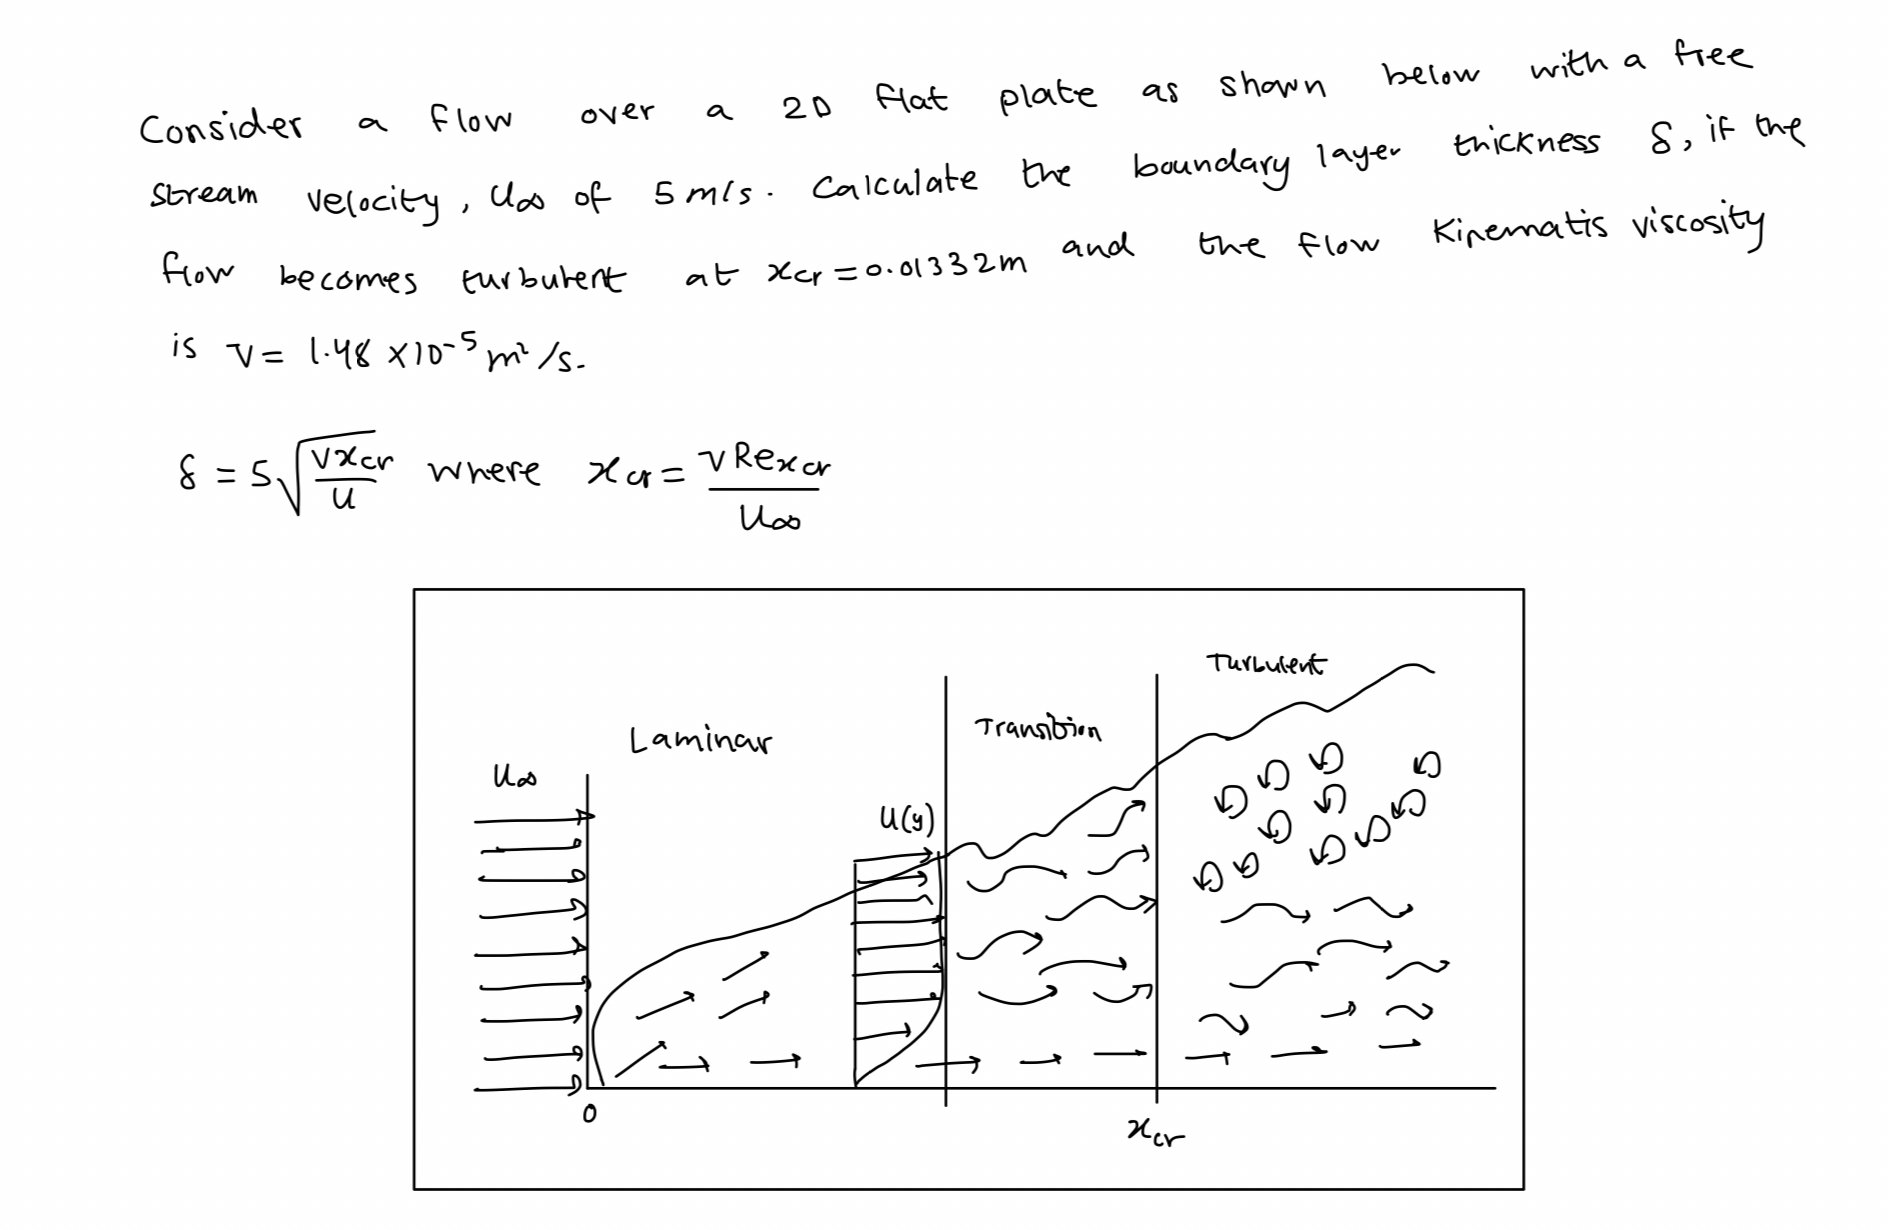 Consider a flow over a 2D flat plate as shown below with a free
stream velocity, U∞ of 5 m/s. Calculate the boundary layer thickness δ, if the
flow becomes turbulent at xcr = 0.01332m and the flow Kinematis viscosity
is ν = 1.48 ×10⁻⁵ m²/s.
δ = 5√(νxcr/U) where xcr = νRexcr/U∞
Turbulent
Transition
Laminar
U∞
U(y)
0
xcr